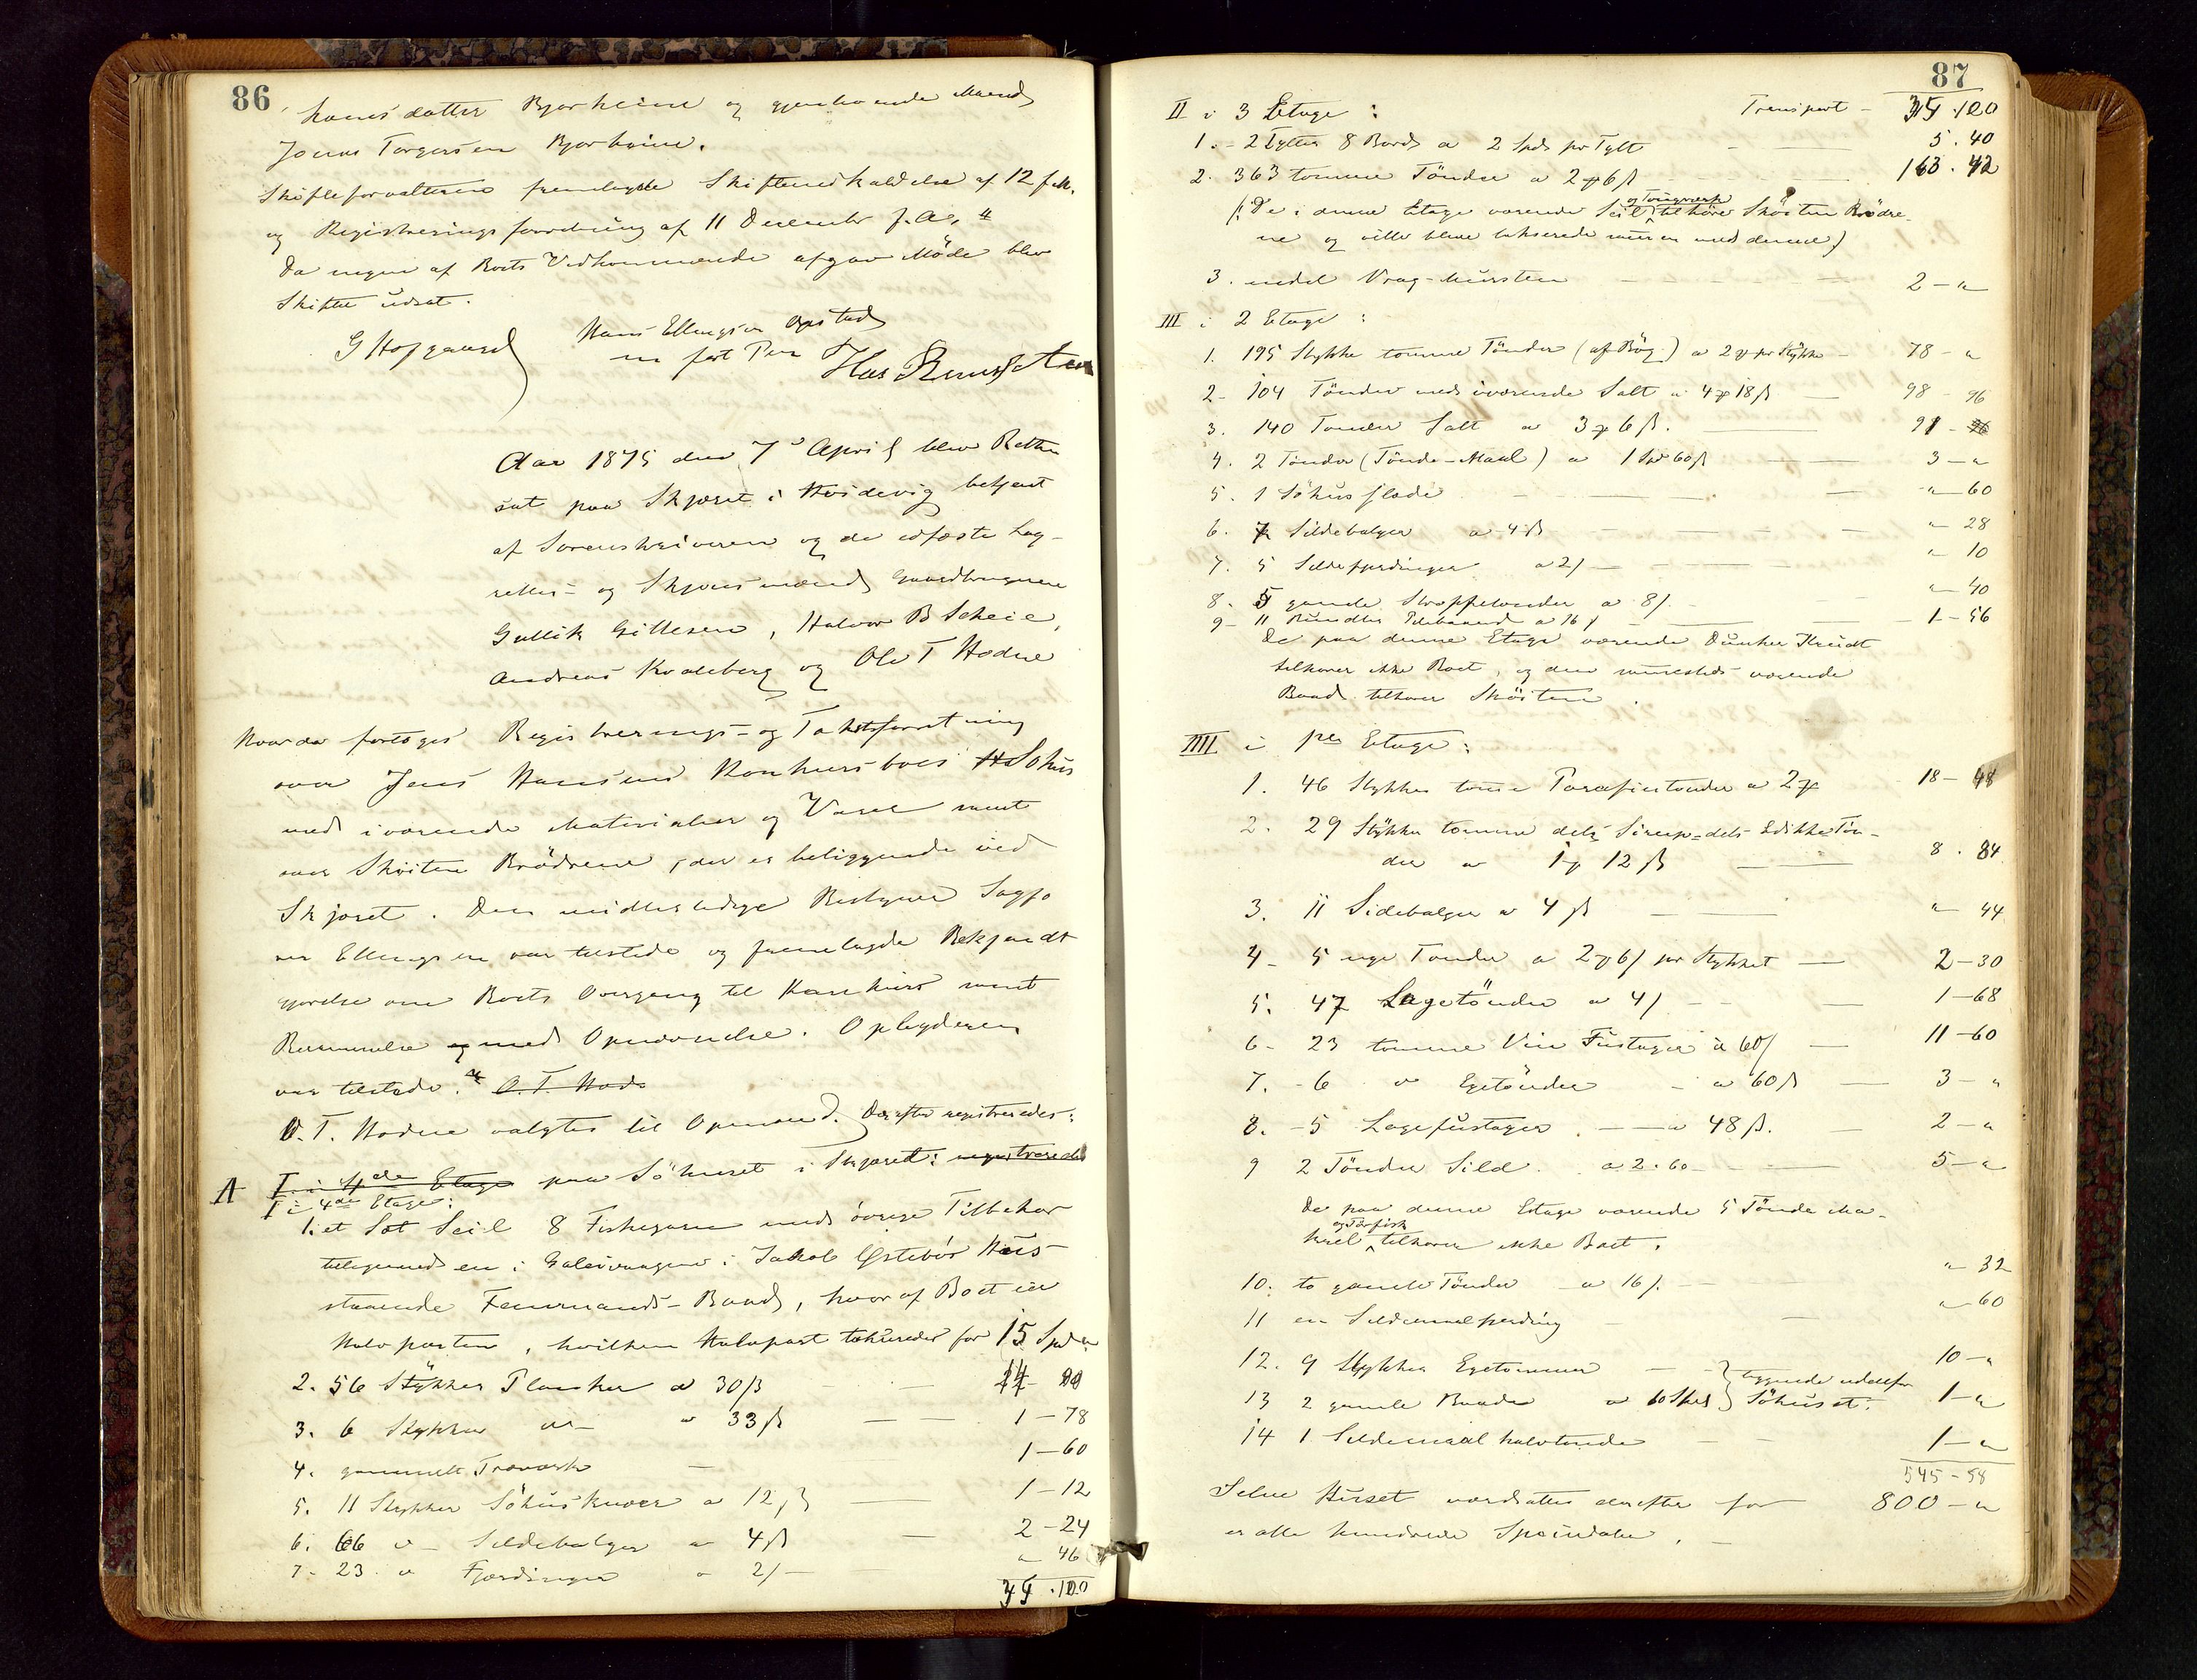 86
hansdatter Bjorheim og gjenboende Mand
Jonas Torgersen Bjorheim.
Skifteforvalteren fremlagde Skifteindkaldelse af 12 f. M.
og Registreringsforretning af 11 December f. A.
Da ingen af Boets Vedkommende afgav Møde blev
Skiftet udsat.
G Hofgaard Hans Ellingsen Opstad
Aar 1875 den 7 April blev Retten
sat paa Skjæret i Hvidevig betjent
af Sorenskriveren og de edfæste Lag-
rettes- og Skjønsmænd Gaardbrugerne
Gullik Gittesen, Halvor B Scheie,
Andreas Kvaleberg og Ole T Hodne
Hvorda foretoges Registrerings- og Takstforretning
over Jens Hansens Konkursboes Søhus
med iværende Materialier og Varer samt
over Skøiten Brødrene, der er beliggende ved
Skjæret. Den midlertidige Bestyrer Sagfø
rer Ellingsen var tilstede og fremlagde Bekjendt
gjørelse om Boets Overgang til Konkurs samt
Berammelse med Opnævnelse. Oplyderen
var tilstede. O. T. Hod
O. T. Hodne valgtes til Opmand. Derefter registreredes:
A I i 4de Etage paa Søhuset i Skjæret: registrered
I i 4de Etage:
1. et Sæt Seil 8 Fiskegarn med øvrige Tilbehør
tilligemed en i Jakob Østebøs Hus
staaende Femmands-Baad, hvoraf Boet eier
Halvparten, hvilken Halvpart takseredes for 15 Spd "
2. 56 Stykker Planker a 30 ß 14
3. 6 Stykker do a 33 ß 1 - 78
4. gammelt Træværk 1 - 60
5. 11 Stykker Søhusknæer a 12 ß 1 - 12
6. 66 " Sildebalger a 4 ß 2 - 24
7. 23 " Fjerdinger a 2 ß " 46
35 . 100
87
II i 3 Etage: Transport 35 . 100
1. 2 Tylter 8 Bord a 2 Spd pr Tylt 5 . 40
2. 363 tomme Tønder a 2 6 ß 163 . 42
(: De i denne Etage værende Seil og Tougværk tilhører Skøiten Brødre-
ne og ville blive takserede sammen med denne)
3. endel Vrag-Mursten 2 - "
III i 2 Etage:
1. 195 Stykke tomme Tønder (af Bøg) a 2 pr Stykke 78 - "
2. 104 Tønder med iværende Salt a 4 18 ß 98 - 96
3. 140 Tønder Salt a 3 6 ß. 91 -
4. 2 Tønder (Tønde-Maal) a 1 Spd 60 ß 3 - "
5. 1 Søhusflaade " 60
6. 7 Sildebalger a 4 ß " 28
7. 5 Sildefjerdinger a 2 ß " 10
8. 5 gamle Stroppetønder a 8 ß. " 40
9. 11 Bundter a 16 ß 1 - 56
De paa denne Etage værende Dunker Krudt
tilhører ikke Boet, og den værende
Baad tilhører Skøiten.
IIII i 1ste Etage:
1. 46 Stykker tomme Parafintønder a 2 18 - 48
2. 29 Stykker tomme dels Sirup- dels Edikke Tøn-
der a 1 12 ß 8 . 84
3. 11 Sildebalger a 4 ß " 44
4. 5 nye Tønder a 2 6 ß pr Stykket 2 - 30
5. 47 Lagetønder a 4 ß 1 - 68
6. 23 tomme Vin Fustager a 60 ß 11 - 60
7. 6 " Egetønder a 60 ß 3 - "
8. 5 Lagefustager a 48 ß. 2 - "
9 2 Tønder Sild a 2.60 5 - "
De paa denne Etage værende 5 Tønde Ma-
krel og Tørfisk tilhører ikke Boet.
10. to gamle Tønder a 16 ß. " 32
11 en Sildemaalfjerding " 60
12. 9 Stykker Egetømmer } liggende udenfor 10 - "
13 2 gamle Baade a 60 Skil } Søhuset. 1 - "
14 1 Sildemaal halvtønde 1 - "
545 - 58
Selve Huset værdsattes derefter for 800 - "
er otte hundrede Speciedaler.